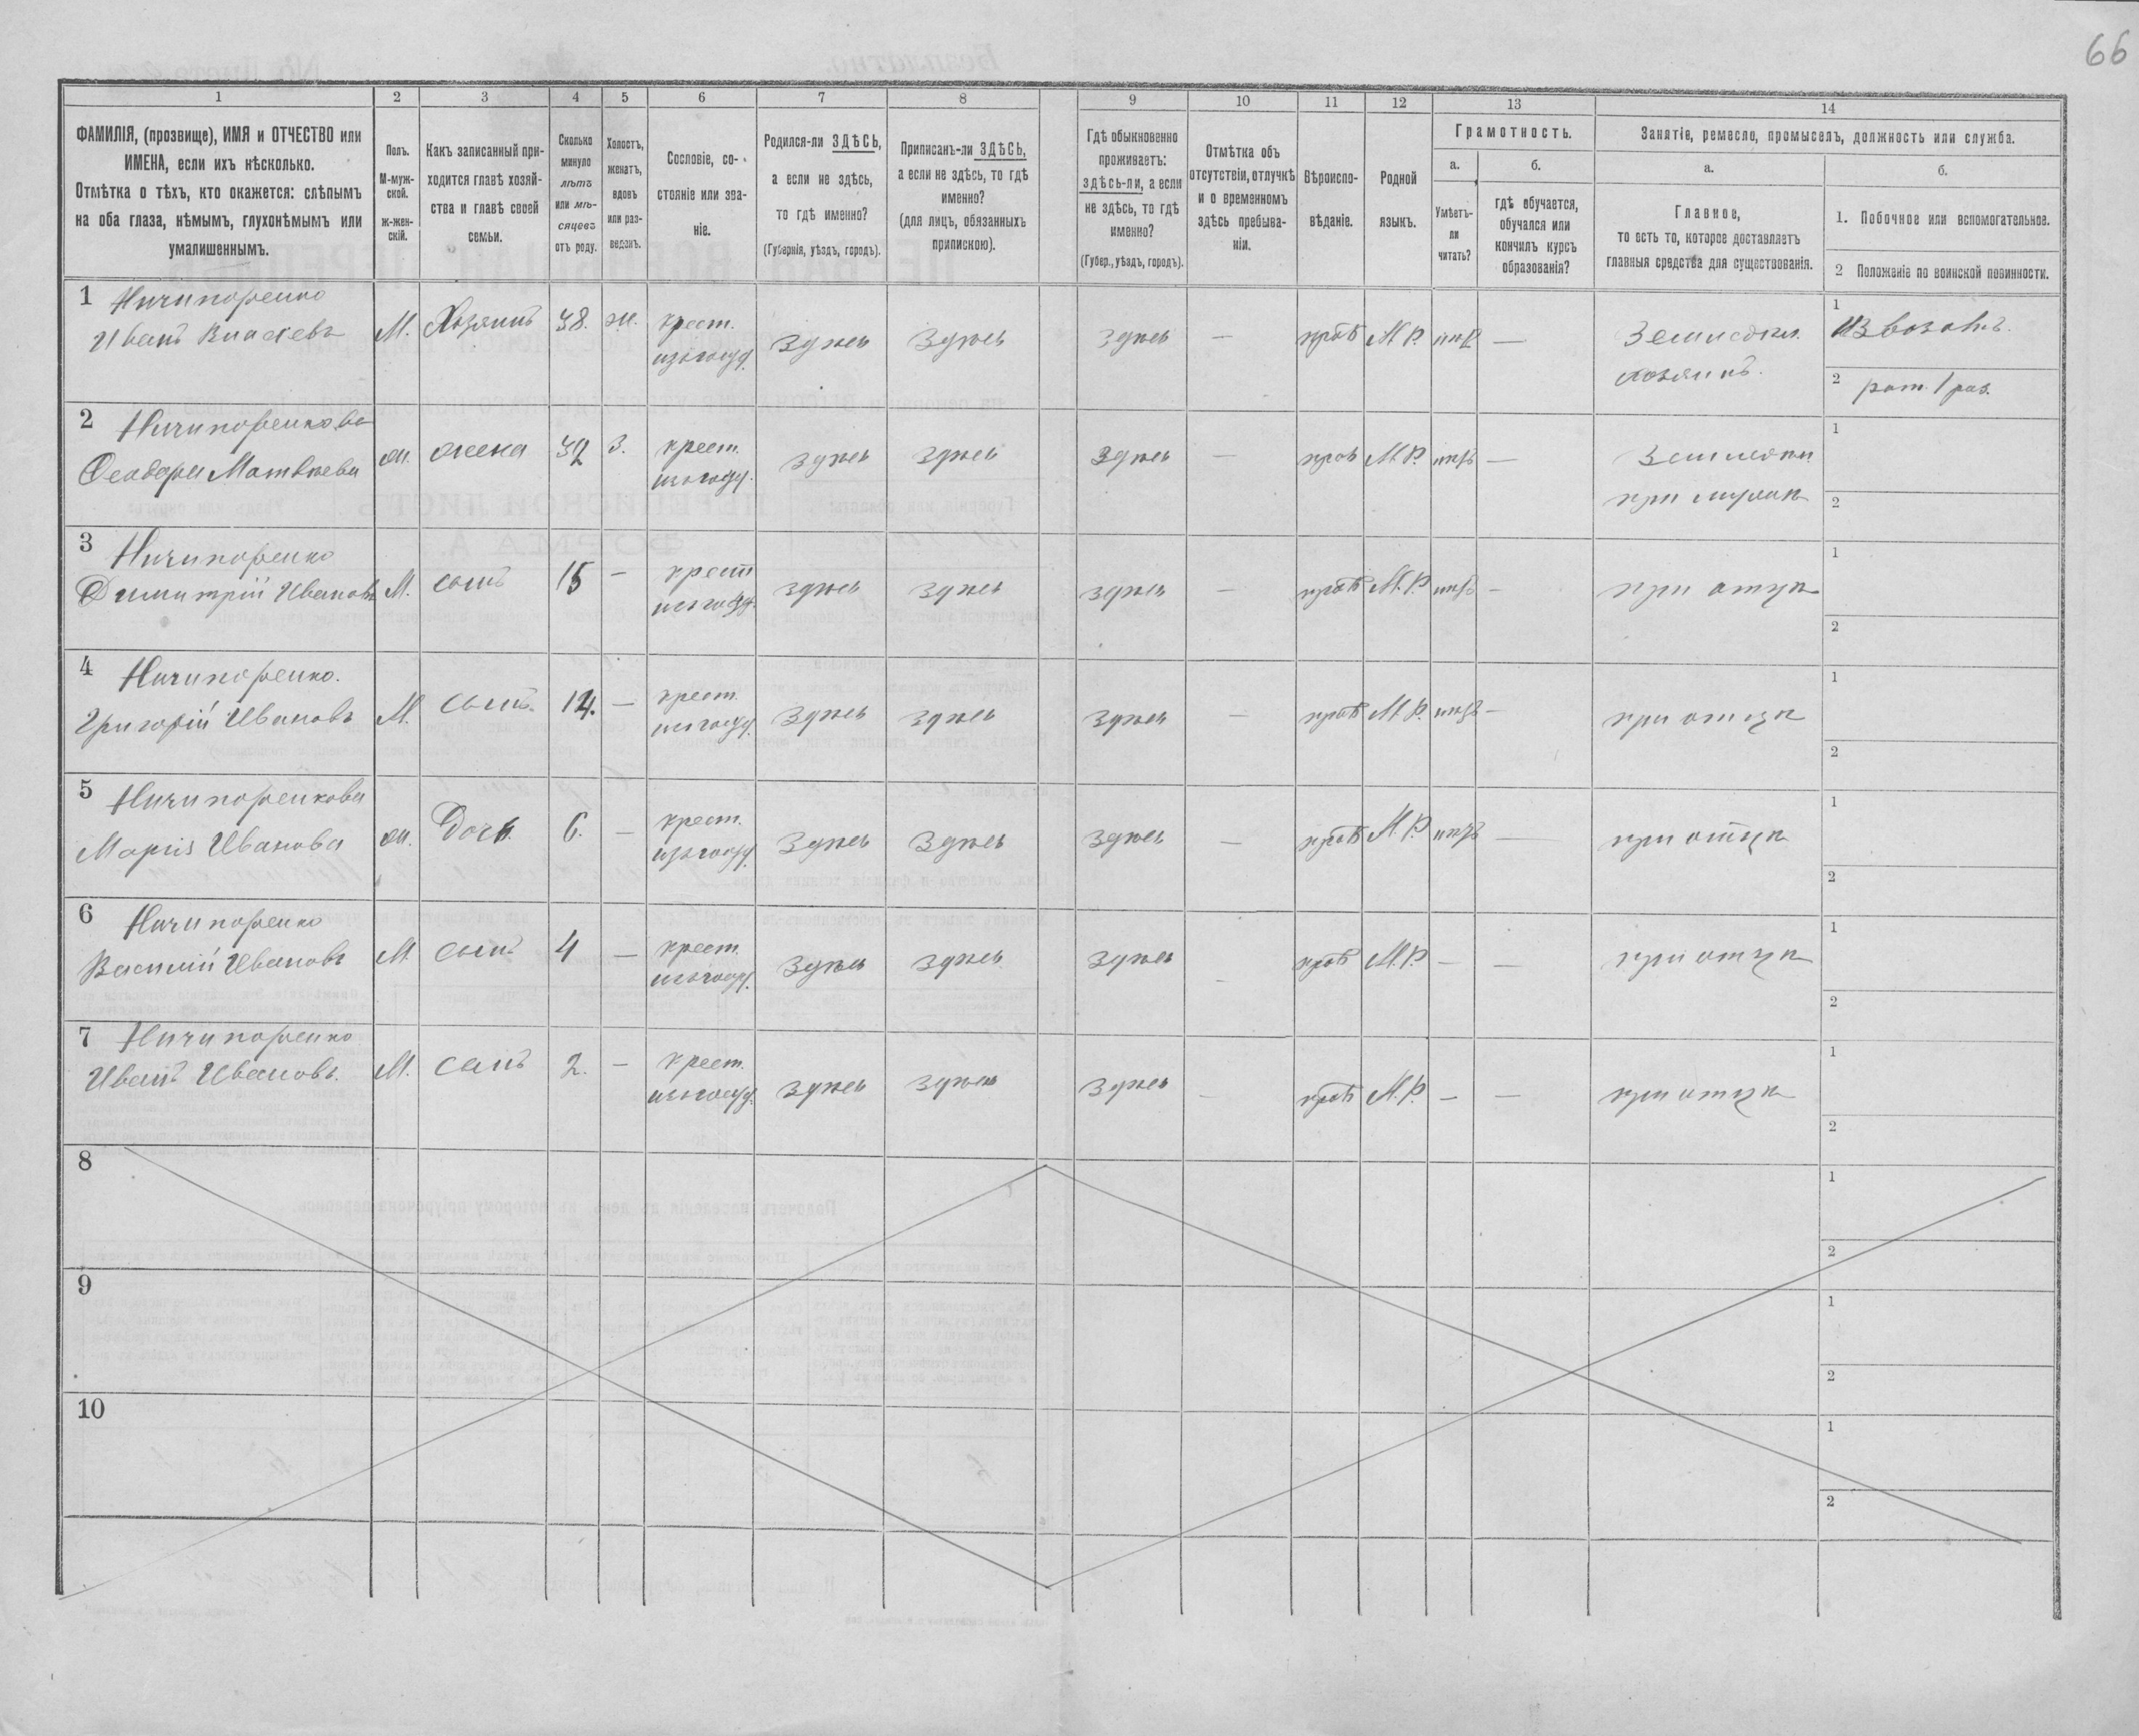 66
1 2 3 4 5 6 7 8 9 10 11 12 13 14
ФАМИЛІЯ, (прозвище), ИМЯ и ОТЧЕСТВО или
ИМЕНА, если ихъ нѣсколько.
Отмѣтка о тѣхъ, кто окажется: слѣпымъ
на оба глаза, нѣмымъ, глухонѣмымъ или
умалишеннымъ.
Полъ.
М-муж-
ской.
ж-жен-
скій.
Какъ записанный при-
ходится главѣ хозяй-
ства и главѣ своей
семьи.
Сколько
минуло
лѣтъ
или мѣ-
сяцевъ
отъ роду.
Холостъ,
женатъ,
вдовъ
или раз-
веденъ.
Сословіе, со-
стояніе или зва-
ніе.
Родился-ли ЗДѢСЬ,
а если не здѣсь,
то гдѣ именно?
(Губернія, уѣздъ, городъ).
Приписанъ-ли ЗДѢСЬ,
а если не здѣсь, то гдѣ
именно?
(для лицъ, обязанныхъ
припискою).
Гдѣ обыкновенно
проживаетъ:
здѣсь-ли, а если
не здѣсь, то гдѣ
именно?
(Губер., уѣздъ, городъ).
Отмѣтка объ
отсутствіи, отлучкѣ
и о временномъ
здѣсь пребыва-
ніи.
Вѣроиспо-
вѣданіе.
Родной
языкъ.
Грамотность.
а.
Умѣетъ-
ли
читать?
б.
гдѣ обучается,
обучался или
кончилъ курсъ
образованія?
Занятіе, ремесло, промыселъ, должность или служба.
а.
Главное,
то есть то, которое доставляетъ
главныя средства для существованія.
б.
1. Побочное или вспомогательное.
2 Положеніе по воинской повинности.
1 Ничипоренко
Иванъ Власіевъ М. Хозяинъ 38. ж. крест. изъ госуд. Здѣсь Здѣсь Здѣсь — прав М.Р. — Земледѣл. хозяинъ.
1 Извозомъ.
2 рат. 1 раз.
2 Ничипоренкова
Феодора Матвѣева ж. жена 32 З. крест. изъ госуд. здѣсь здѣсь Здѣсь — прав М.Р. — при мужѣ
1
2
3 Ничипоренко
Димитрій Ивановъ М. сынъ 15 — крест изъ госуд. здѣсь здѣсь здѣсь — прав М.Р. — при отцѣ
1
2
4 Ничипоренко.
Григорій Ивановъ М. сынъ. 14. — крест. изъ госуд. здѣсь здѣсь здѣсь — прав М.Р. — при отцѣ
1
2
5 Ничипоренкова
Марія Иванова ж. Дочь. 6. — крест. изъ госуд. Здѣсь Здѣсь Здѣсь — прав М.Р. — при отцѣ
1
2
6 Ничипоренко
Василій Ивановъ М. сынъ 4 — крест. изъ госуд. Здѣсь здѣсь Здѣсь — прав М.Р. — — при отцѣ
1
2
7 Ничипоренко
Иванъ Ивановъ. М. сынъ 2. — крест. изъ госуд. Здѣсь здѣсь Здѣсь — прав М.Р. — — при отцѣ
1
2
8
1
2
9
1
2
10
1
2